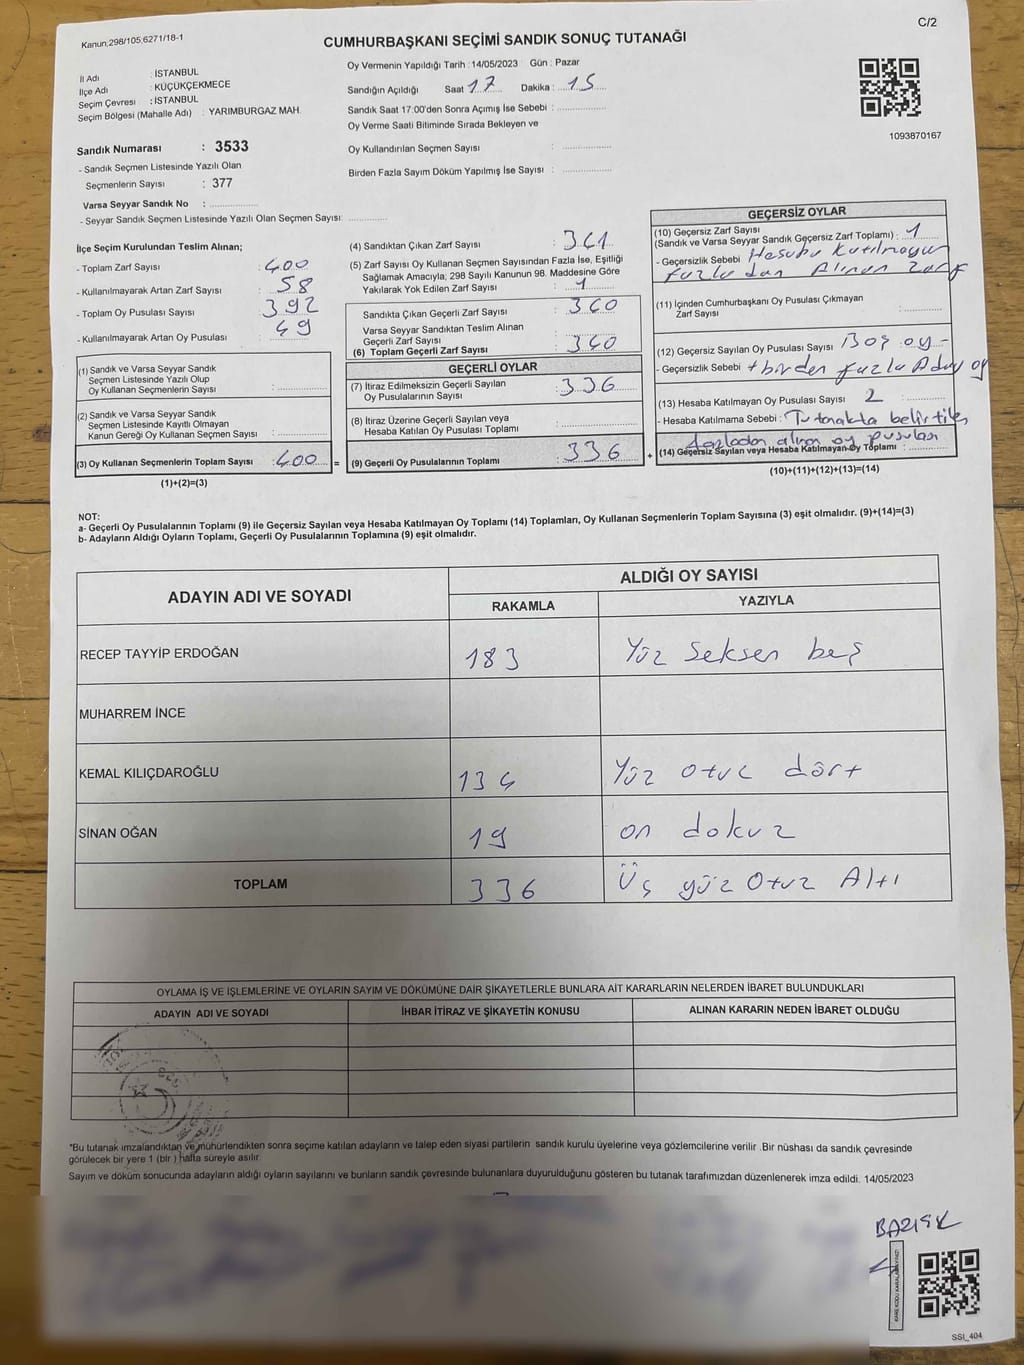 Kanun,298/105,6271/18-1
C/2
CUMHURBAŞKANI SEÇİMİ SANDIK SONUÇ TUTANAĞI
İl Adı : İSTANBUL
İlçe Adı : KÜÇÜKÇEKMECE
Seçim Çevresi : İSTANBUL
Seçim Bölgesi (Mahalle Adı) : YARIMBURGAZ MAH.
Sandık Numarası : 3533
- Sandık Seçmen Listesinde Yazılı Olan
Seçmenlerin Sayısı : 377
Varsa Seyyar Sandık No : ..............
- Seyyar Sandık Seçmen Listesinde Yazılı Olan Seçmen Sayısı: ............
Oy Vermenin Yapıldığı Tarih :14/05/2023 Gün : Pazar
Sandığın Açıldığı Saat 17 Dakika : 15
Sandık Saat 17:00'den Sonra Açımış İse Sebebi : ..............
Oy Verme Saati Bitiminde Sırada Bekleyen ve
Oy Kullandırılan Seçmen Sayısı : ..............
Birden Fazla Sayım Döküm Yapılmış İse Sayısı : ..............
1093870167
İlçe Seçim Kurulundan Teslim Alınan;
- Toplam Zarf Sayısı : 400
- Kullanılmayarak Artan Zarf Sayısı : 58
- Toplam Oy Pusulası Sayısı : 392
- Kullanılmayarak Artan Oy Pusulası : 49
(1) Sandık ve Varsa Seyyar Sandık
Seçmen Listesinde Yazılı Olup
Oy Kullanan Seçmenlerin Sayısı : ..............
(2) Sandık ve Varsa Seyyar Sandık
Seçmen Listesinde Kayıtlı Olmayan
Kanun Gereği Oy Kullanan Seçmen Sayısı : ..............
(3) Oy Kullanan Seçmenlerin Toplam Sayısı : 400 =
(1)+(2)=(3)
(4) Sandıktan Çıkan Zarf Sayısı : 341
(5) Zarf Sayısı Oy Kullanan Seçmen Sayısından Fazla İse, Eşitliği
Sağlamak Amacıyla; 298 Sayılı Kanunun 98. Maddesine Göre
Yakılarak Yok Edilen Zarf Sayısı : 1
Sandıkta Çıkan Geçerli Zarf Sayısı : 340
Varsa Seyyar Sandıktan Teslim Alınan
Geçerli Zarf Sayısı : ..............
(6) Toplam Geçerli Zarf Sayısı : 340
GEÇERLİ OYLAR
(7) İtiraz Edilmeksizin Geçerli Sayılan
Oy Pusulalarının Sayısı : 336
(8) İtiraz Üzerine Geçerli Sayılan veya
Hesaba Katılan Oy Pusulası Toplamı : ..............
(9) Geçerli Oy Pusulalarının Toplamı : 336 +
GEÇERSİZ OYLAR
(10) Geçersiz Zarf Sayısı
(Sandık ve Varsa Seyyar Sandık Geçersiz Zarf Toplamı) : 1
- Geçersizlik Sebebi Hesaba Katılmayan
fazladan Alınan Zarf
(11) İçinden Cumhurbaşkanı Oy Pusulası Çıkmayan
Zarf Sayısı : ..............
(12) Geçersiz Sayılan Oy Pusulası Sayısı 1 Boş oy -
- Geçersizlik Sebebi + birden fazla Aday oy
(13) Hesaba Katılmayan Oy Pusulası Sayısı 2
- Hesaba Katılmama Sebebi : Tutanakta belirtilen
fazladan alınan oy pusulası
(14) Geçersiz Sayılan veya Hesaba Katılmayan Oy Toplamı : ............
(10)+(11)+(12)+(13)=(14)
NOT:
a- Geçerli Oy Pusulalarının Toplamı (9) ile Geçersiz Sayılan veya Hesaba Katılmayan Oy Toplamı (14) Toplamları, Oy Kullanan Seçmenlerin Toplam Sayısına (3) eşit olmalıdır. (9)+(14)=(3)
b- Adayların Aldığı Oyların Toplamı, Geçerli Oy Pusulalarının Toplamına (9) eşit olmalıdır.
ADAYIN ADI VE SOYADI ALDIĞI OY SAYISI
RAKAMLA YAZIYLA
RECEP TAYYİP ERDOĞAN 183 Yüz Seksen beş
MUHARREM İNCE
KEMAL KILIÇDAROĞLU 134 Yüz otuz dört
SİNAN OĞAN 19 on dokuz
TOPLAM 336 Üç yüz Otuz Altı
OYLAMA İŞ VE İŞLEMLERİNE VE OYLARIN SAYIM VE DÖKÜMÜNE DAİR ŞİKAYETLERLE BUNLARA AİT KARARLARIN NELERDEN İBARET BULUNDUKLARI
ADAYIN ADI VE SOYADI İHBAR İTİRAZ VE ŞİKAYETİN KONUSU ALINAN KARARIN NEDEN İBARET OLDUĞU
*Bu tutanak imzalandıktan ve mühürlendikten sonra seçime katılan adayların ve talep eden siyasi partilerin sandık kurulu üyelerine veya gözlemcilerine verilir .Bir nüshası da sandık çevresinde
görülecek bir yere 1 (bir ) hafta süreyle asılır.
Sayım ve döküm sonucunda adayların aldığı oyların sayılarını ve bunların sandık çevresinde bulunanlara duyurulduğunu gösteren bu tutanak tarafımızdan düzenlenerek imza edildi. 14/05/2023
KARE KODU KARALAMAYINIZ!
SSİ_404